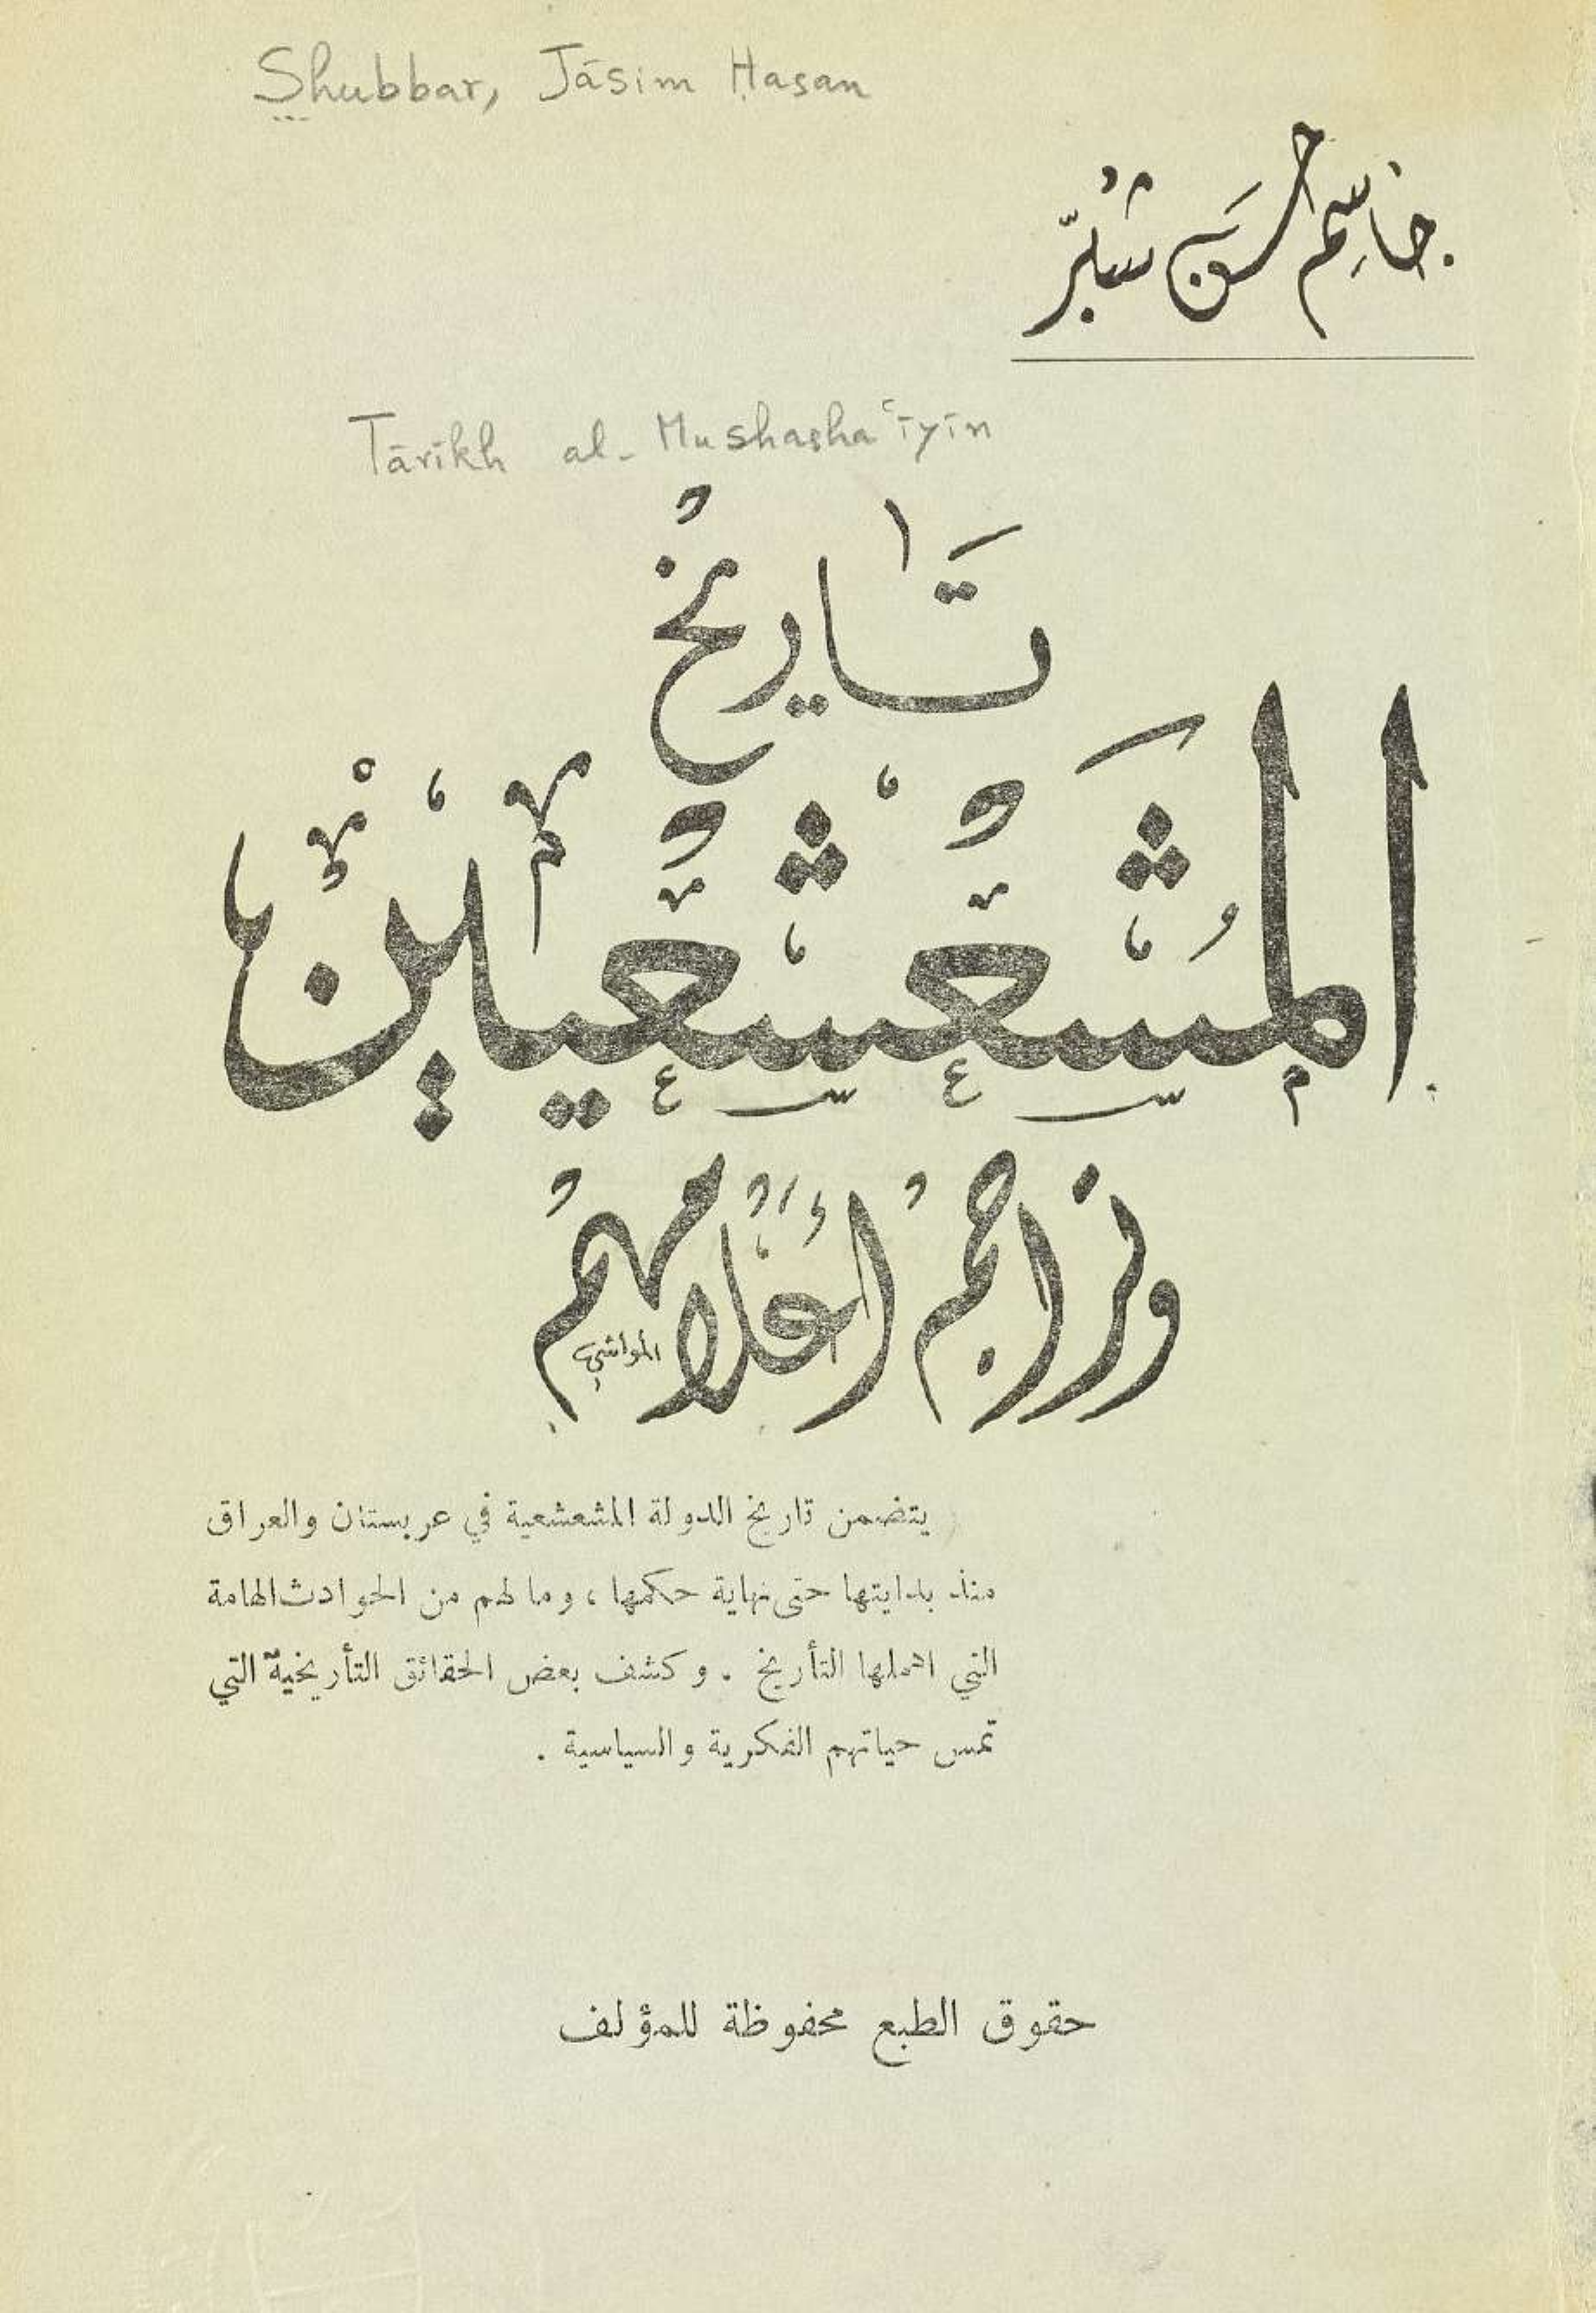 Shubbar, Jāsim Ḥasan
جاسم حسن شبّر
Tārīkh al-Mushashaʿīyīn
تاريخ
المشعشعيين
وتراجم أعلامهم
المواشي
يتضمن تاريخ الدولة المشعشعية في عربستان والعراق
منذ بدايتها حتى نهاية حكمها ، وما لهم من الحوادث الهامة
التي اهملها التأريخ . وكشف بعض الحقائق التأريخية التي
تمس حياتهم الفكرية والسياسية .
حقوق الطبع محفوظة للمؤلف